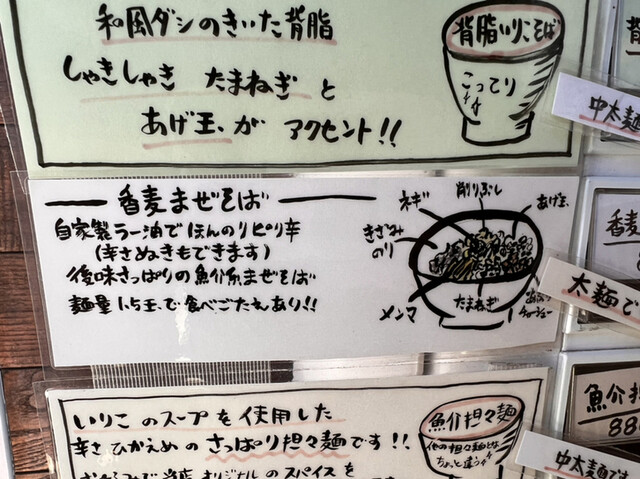 和風ダシのきいた背脂
しゃきしゃき たまねぎ と
あげ玉が アクセント!!
背脂いりこそば
こってり
中太麺
香麦まぜそば
自家製ラー油でほんのりピリ辛
(辛さぬきもできます)
後味さっぱりの魚介系まぜそば
麺量1.5玉で食べごたえあり!!
ネギ
削りぶし
あげ玉
きざみ
のり
メンマ
たまねぎ
チャーシュー
香麦
太麺で
いりこのスープを使用した
辛さひかえめのさっぱり担々麺です!!
当店オリジナルのスパイスを
魚介担々麺
他の担々麺とは
ちょっと違う
魚介担
88
中太麺です